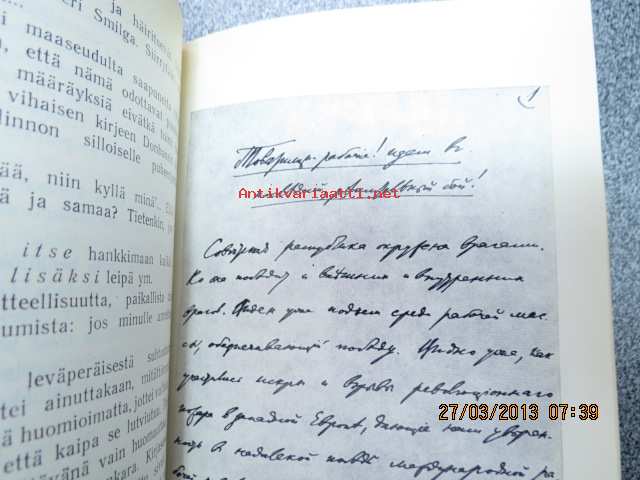 ja häiritsevä
eri Smilga. Siirryttyä
maaseudulta saapuneita
, että nämä odottavat
määräyksiä eivätkä
vihaisen kirjeen Donbassin
linnon silloiselle
ää, niin kyllä minä".
ä ja samaa? Tietenkin,
itse hankkimaan
lisäksi leipä ym.
tteellisuutta, paikallista
umista: jos minulle
leväperäisestä
tei ainuttakaan,
ä huomioimatta, jottei
että kaipa se lutviutuu
tävänä vain
1
Товарищи-рабочие! идем в
последний, решительный бой!
Antikvariaatti.net
Советская республика окружена врагами.
Но она победит и внешних и внутренних
врагов. Виден уже подъем среди рабочей мас-
сы, обеспечивающий победу. Видно уже, как
участились искры и взрывы революционного
пожара в Западной Европе, дающие нам уверен-
ность в недалекой победе международной ра
бочей
27/03/2013 07:39